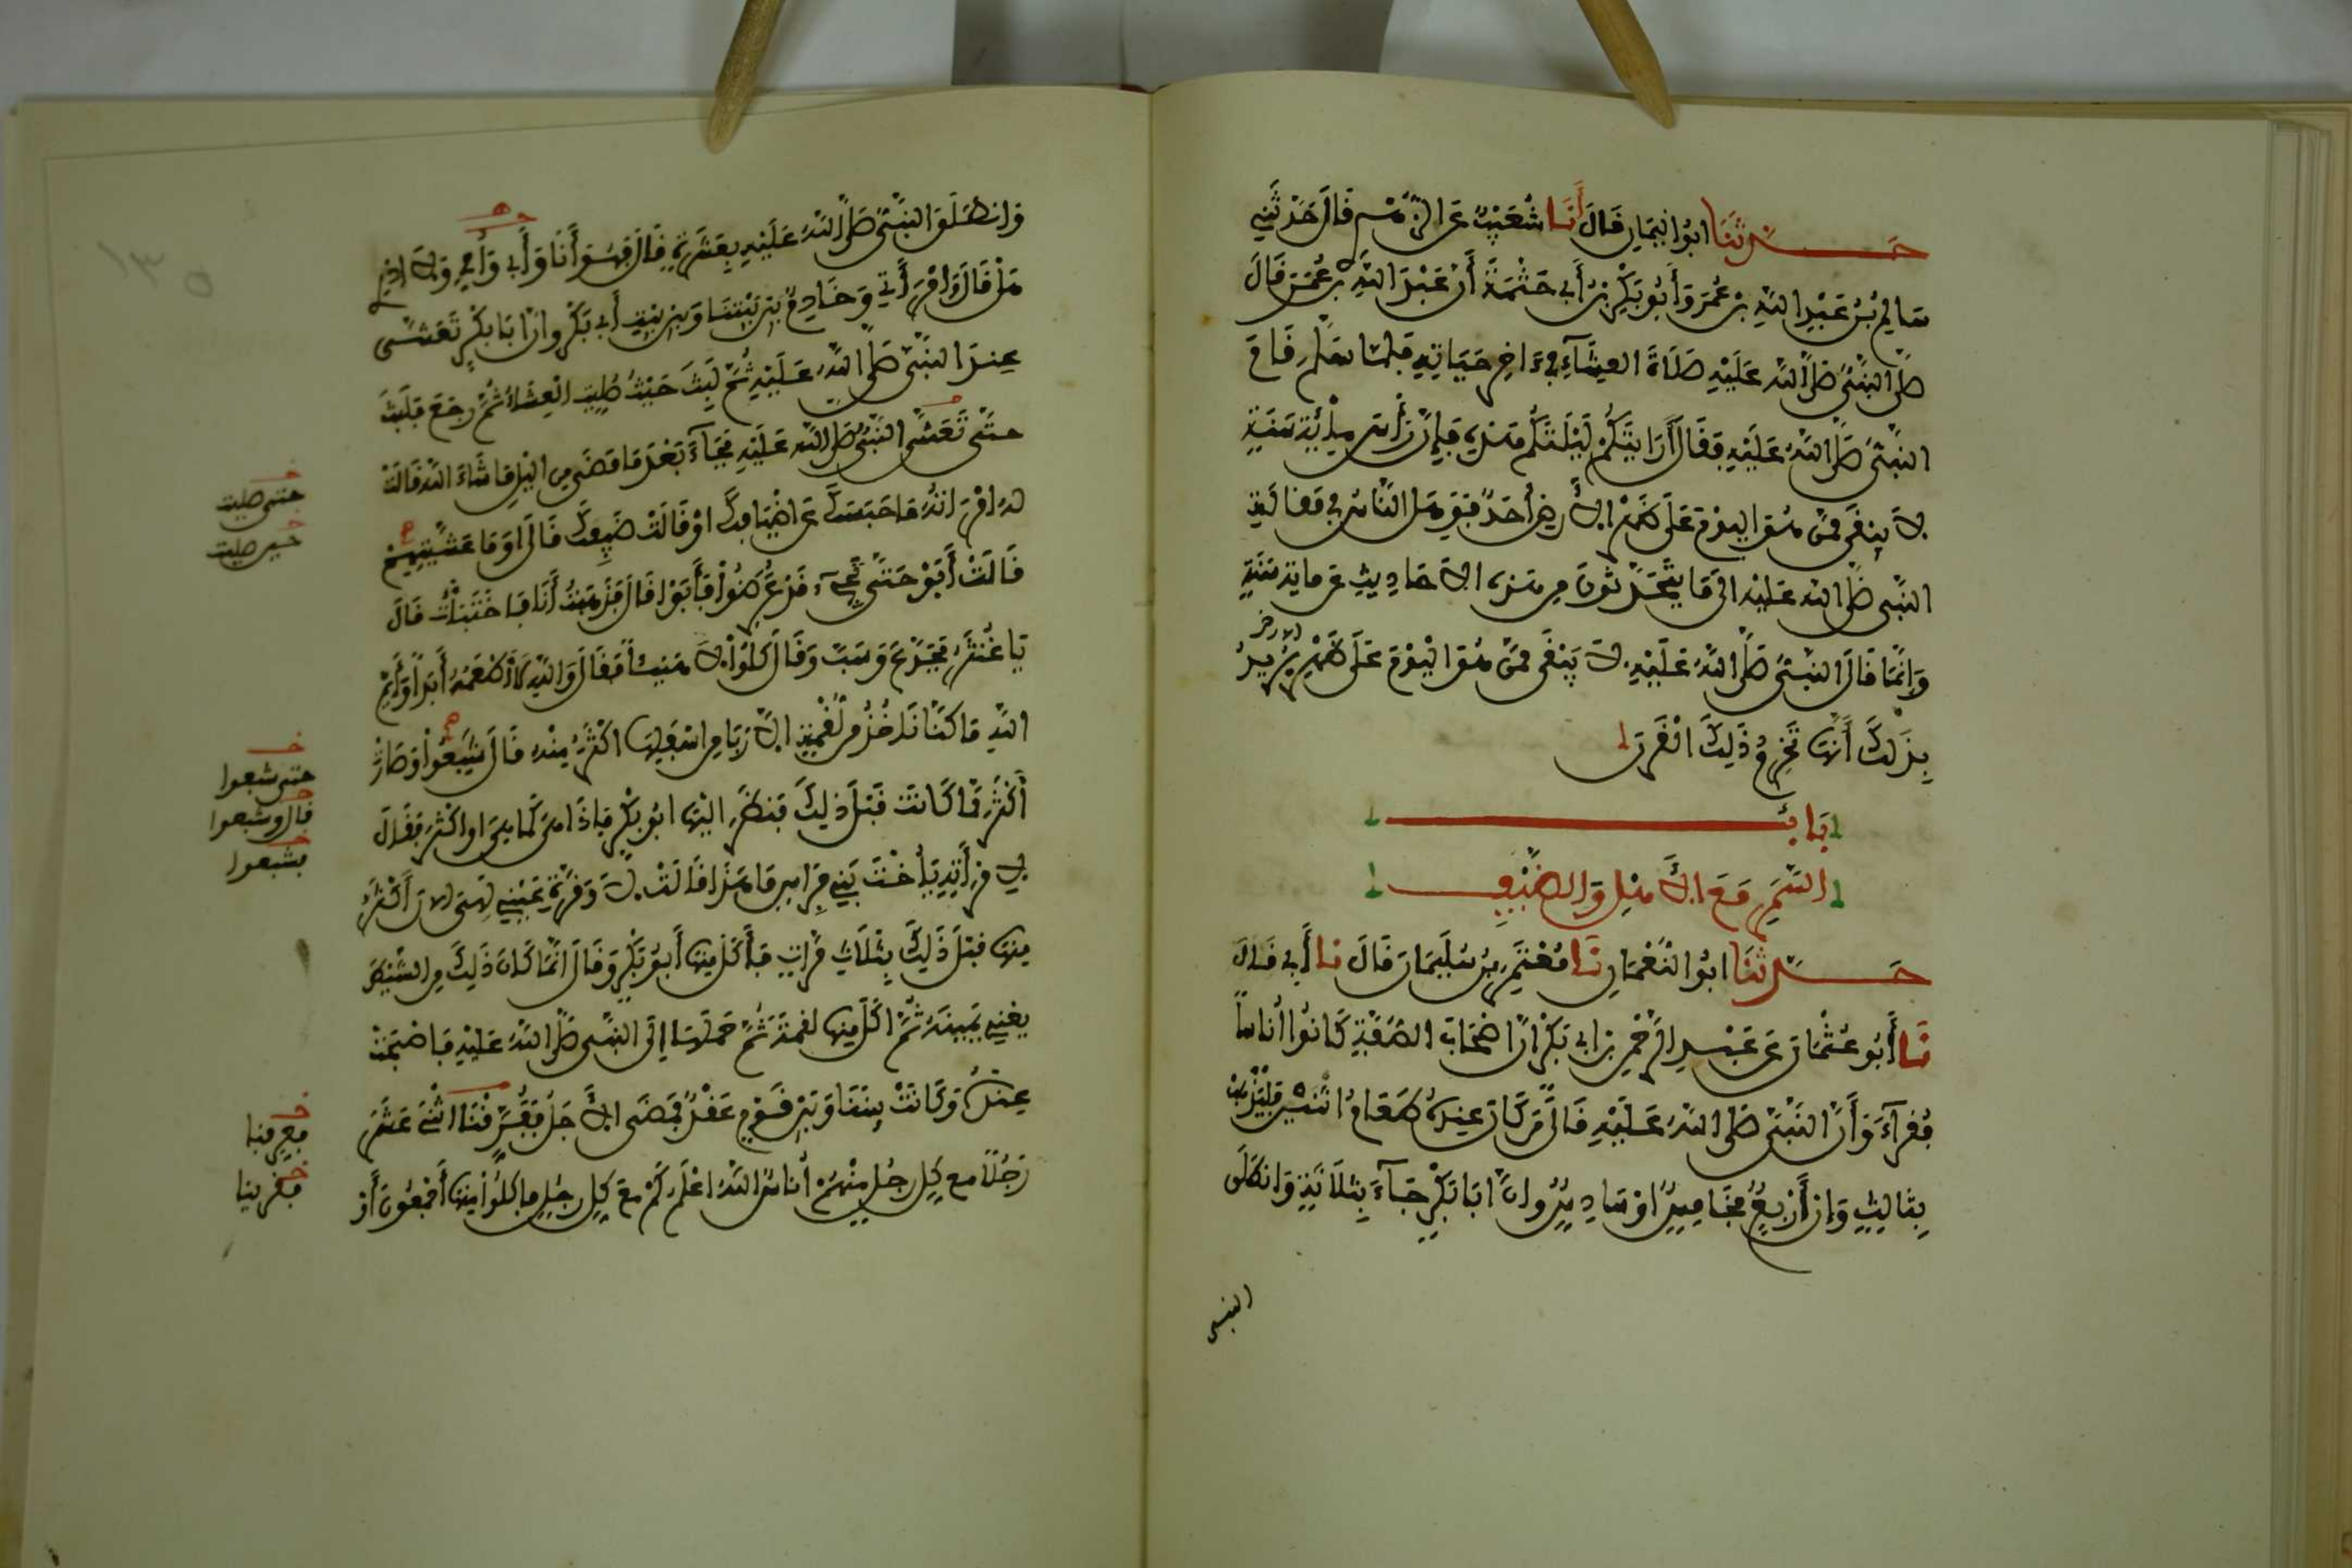 حدثنا ابوا اليمان قال أنا شعيب عن الزهري قال حدثني
سالم بن عبد الله بن عمر وأبو بكر بن أبي حثمة أن عبد الله بن عمر قال
صلى النبي صلى الله عليه صلاة العشاء في ءاخر حياته فلما سلم قام
النبي صلى الله عليه فقال أرايتكم ليلتكم هذه فإن رأس مائة سنة
لا يبقى ممن هو اليوم على ظهر الأرض أحد فوهل الناس في مقالة
النبي صلى الله عليه الى ما يتحدثون من هذه الأحاديث عن ماية سنة
وإنما قال النبي صلى الله عليه لا يبقى ممن هو اليوم على ظهر الارض يريد
بذلك أنها تخرم ذلك القرن
باب
السمر مع الأهل والضيف
حدثنا ابوا النعمان نا معتمر بن سليمان قال نا أبي قال
نا أبو عثمان عن عبد الرحمن بن ابي بكر ان اصحاب الصفة كانوا أناسا
فقراء وأن النبي صلى الله عليه قال من كان عنده طعام اثنين فليذهب
بثالث وإن أربع فخامس او سادس وان ابا بكر جاء بثلاثة وانطلق
النبي
وانطلق النبي صلى الله عليه بعشرة قال فهو أنا وأبي وأمي ولا ادري
هل قال وامرأتي وخادم بين بيتنا وبين بيت أبي بكر وان ابا بكر تعشى
عند النبي صلى الله عليه ثم لبث حيث صليت العشاء ثم رجع فلبث
حتى تعشى النبي صلى الله عليه فجاء بعد ما مضى من اليل ما شاء الله قالت
له امرأته ما حبسك عن اضيافك او قالت ضيفك قال اوما عشيتهم
قالت أبوا حتى تجيء قد عرضوا فأبوا قال فذهبت أنا فاختبأت قال
يا غنثر فجدع وسب وقال كلوا لا هنيئا فقال والله لا أطعمه أبدا وأيم
الله ما كنا ناخذ من لقمة الا ربا من اسفلها اكثر منه قال شبعوا وصارت
أكثر مما كانت قبل ذلك فنظر اليها ابو بكر فاذا هي كما هي او اكثر فقال
لامرأته يا أخت بني فراس ما هذا قالت لا وقرة عيني لهي الان أكثر
منها قبل ذلك بثلاث مرات فأكل منها أبو بكر وقال انما كان ذلك من الشيطن
يعني يمينه ثم اكل منها لقمة ثم حملها إلى النبي صلى الله عليه فاصبحت
عنده وكانت بيننا وبين قوم عقد فمضى الأجل ففرقنا اثنى عشر
رجلا مع كل رجل منهم أناس الله اعلم كم مع كل رجل فاكلوا منها أجمعون أو
حتى صليت
حين صليت
حتى شبعوا
قال وشبعوا
فشبعوا
فعرفنا
فقرينا
١٣٥